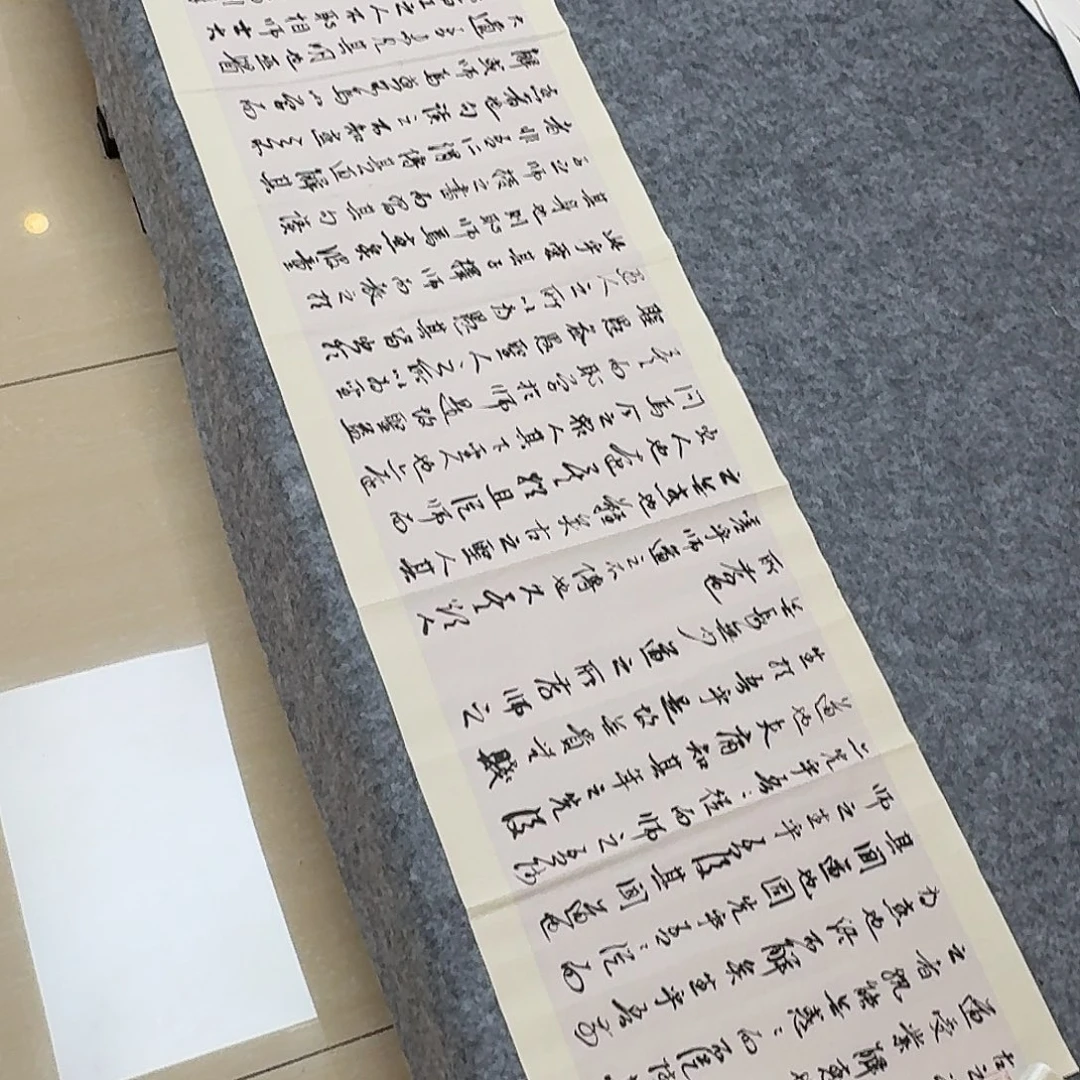 古之
道受業解惑
之者孰能無惑惑而不從
為惑也終不解矣生乎吾前
其聞道也固先乎吾吾從而
師之生乎吾後其聞道也
亦先乎吾吾從而師之吾師
道也夫庸知其年之先後
生於吾乎是故無貴無賤
無長無少道之所存師之
所存也
嗟乎師道之不傳也久矣欲人
之無惑也難矣古之聖人其
出人也遠矣猶且從師而
問焉今之眾人其下聖人也亦遠
矣而恥學於師是故聖益
聖愚益愚聖人之所以為聖
愚人之所以為愚其皆出於
此乎愛其子擇師而教之於
其身也則恥師焉惑矣彼童
子之師授之書而習其句讀
者非吾所謂傳其道解其
惑者也句讀之不知惑之不
解或師焉或不焉小學而
大遺吾未見其明也巫醫
百工之人不恥相師士大